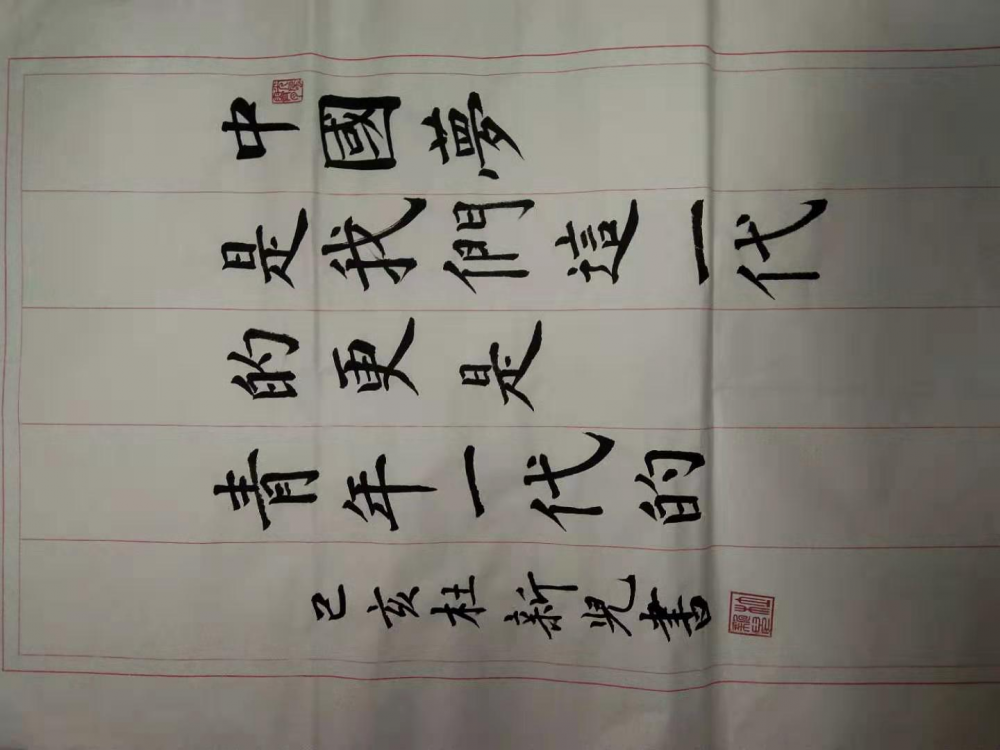 中國夢
是我們這一代
的更是
青年一代的
己亥杜新兒書